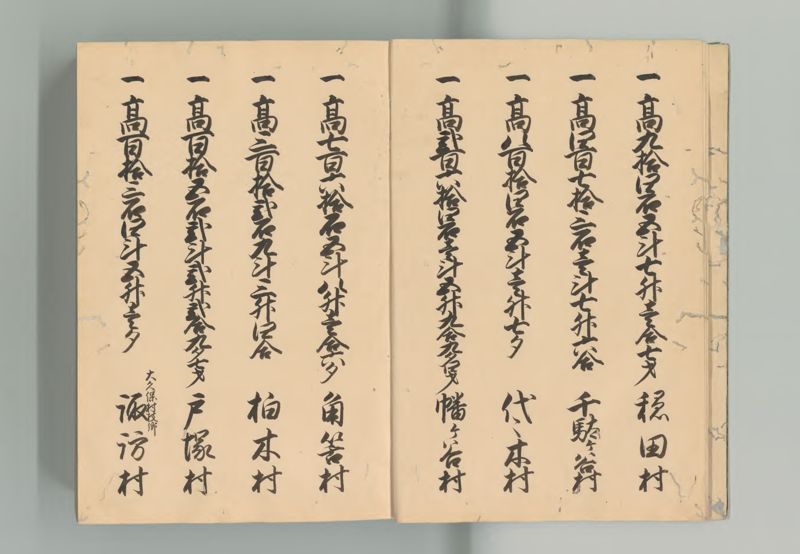 一 高九拾四石五斗七升壱合七才 穏田村
一 高四百七拾三石壱斗七升六合 千駄ヶ谷村
一 高八百拾四石五斗壱升七夕 代々木村
一 高弐百六拾四石壱斗五升九合九夕四才 幡ヶ谷村
一 高七百六拾石五斗八升壱合六夕 角筈村
一 高三百拾弐石九斗三升四合 柏木村
一 高百拾五石弐斗弐升弐合九夕七才 戸塚村
一 高百拾三石四斗五升壱夕 大久保村枝郷 諏訪村